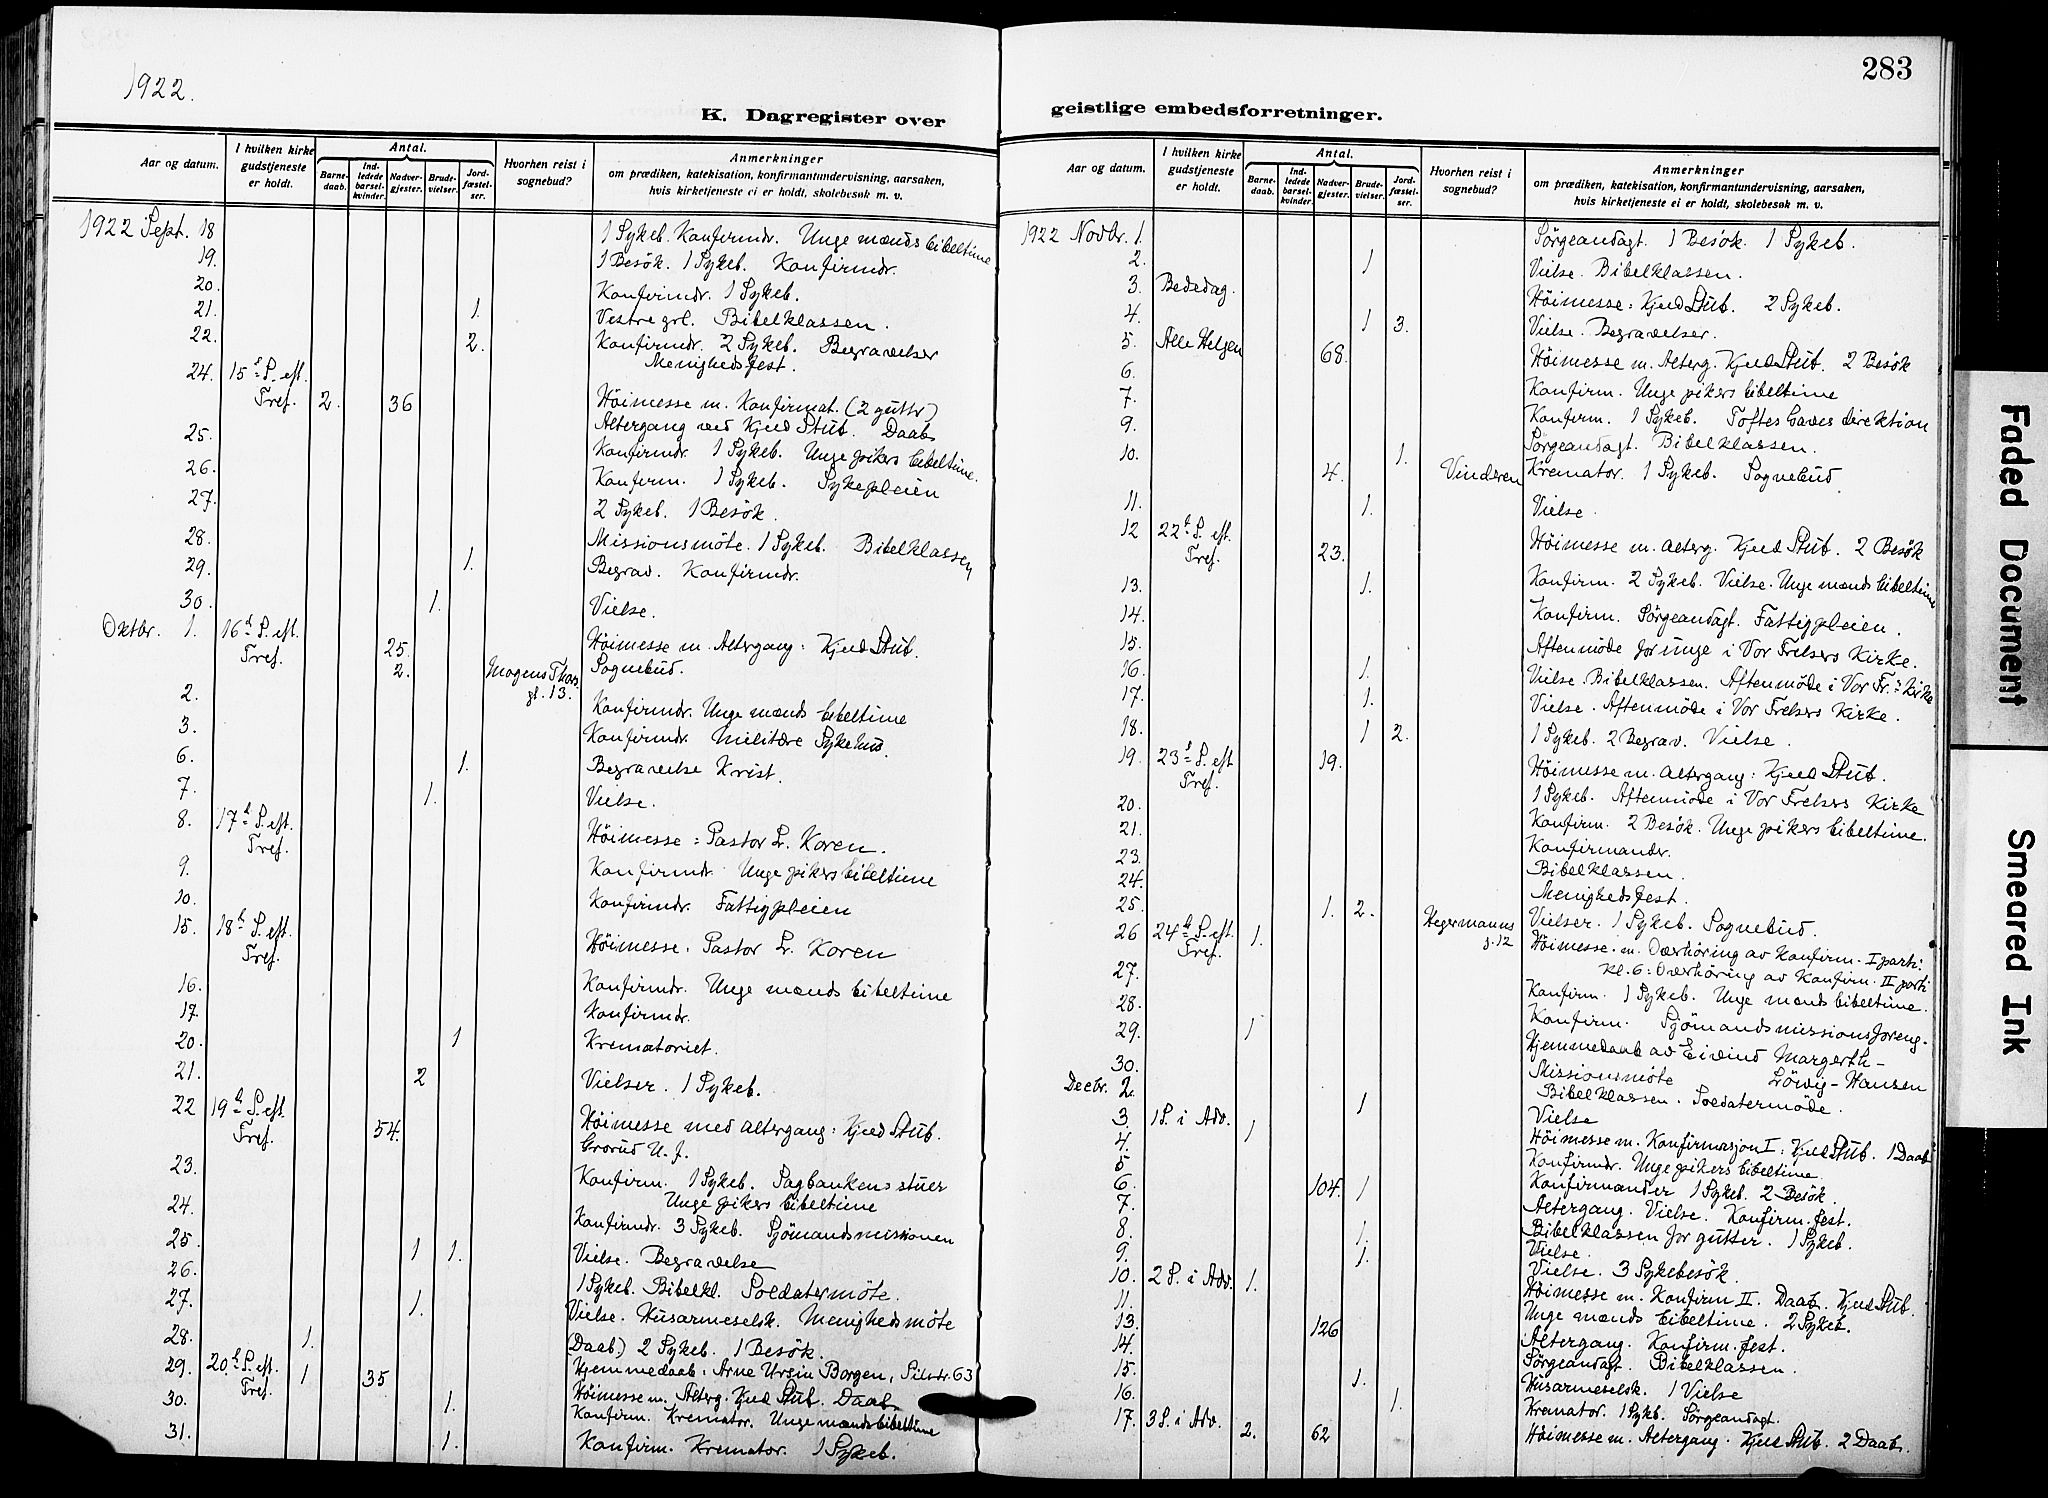 1922.
K. Dagregister over
Aar og datum.
I hvilken kirke gudstjeneste er holdt.
Antal.
Barne-daab.
Ind-ledede barsel-kvinder.
Nadver-gjester.
Brude-vielser.
Jord-fæstel-ser.
Hvorhen reist i sognebud?
Anmerkninger
om prædiken, katekisation, konfirmantundervisning, aarsaken,
hvis kirketjeneste ei er holdt, skolebesøk m. v.
1922 Sept. 18 1 Sykeb. Konfirmdr. Unge mænds bibeltime
19. 1 Besök. 1 Sykeb. Konfirmdr.
20. Konfirmdr. 1 Sykeb.
21. 1. Vestre grl. Bibelklassen.
22. 2. Konfirmdr. 2 Sykeb. Begravelser
Menighedsfest.
24. 15d S. eft.
Tref. 2. 36 Höimesse m. Konfirmat. (2 guttr)
Altergang ved Kjeld Stub. Daab
25. Konfirmdr. 1 Sykeb. Unge pikers bibeltime.
26. Konfirm. 1 Sykeb. Sykepleien
27. 2 Sykeb. 1 Besök.
28. Missionsmöte. 1 Sykeb. Bibelklassen
29. 1. Begrav. Konfirmdr.
30. 1. Vielse.
Oktbr. 1. 16d S. eft.
Tref. 25. Höimesse m. Altergang: Kjeld Stub.
2. Mogens Thors. Sognebud.
gt. 13.
2. Konfirmdr. Unge mænds bibeltime
3. Konfirmdr. Militære Sykehus.
6. 1. Begravelse Krist.
7. 1. Vielse.
8. 17d S. eft.
Tref. Höimesse: Pastor L. Koren.
9. Konfirmdr. Unge pikers bibeltime
10. Konfirmdr. Fattigpleien
15. 18d S. eft.
Tref. Höimesse: Pastor L. Koren
16. Konfirmdr. Unge mænds bibeltime
17. Konfirmdr.
20. 1 Krematoriet.
21. 2 Vielser. 1 Sykeb.
22 19d S. eft.
Tref. 54. Höimesse med altergang: Kjeld Stub.
Grorud U. f.
23. Konfirm. 1 Sykeb. Sagbankens stuer
Unge pikers bibeltime
24. Konfirmdr. 3 Sykeb. Sjömandsmissionen
25. 1 1. Vielse. Begravelse
26. 1 Sykeb. Bibelkl. Soldatermöte.
27. 1. Vielse. Husarmeselsk. Menighedsmöte
28. 1. (Daab.) 2 Sykeb. 1 Besök.
Hjemmedaab: Arne Ursin Borgen, Pilestr. 63
29. 20d S. eft.
Tref. 1 35 Höimesse m. Alterg. Kjeld Stub. Daab.
30. 1. Konfirm. Kremator. Unge mænds bibeltime
31. 1. Konfirm. Kremator. 1 Sykeb.
283
geistlige embedsforretninger.
Aar og datum.
I hvilken kirke gudstjeneste er holdt.
Antal.
Barne-daab.
Ind-ledede barsel-kvinder.
Nadver-gjester.
Brude-vielser.
Jord-fæstel-ser.
Hvorhen reist i sognebud?
Anmerkninger
om prædiken, katekisation, konfirmantundervisning, aarsaken,
hvis kirketjeneste ei er holdt, skolebesøk m. v.
1922 Novbr. 1. Sörgeandagt. 1 Besök. 1 Sykeb.
2. 1 Vielse. Bibelklassen.
3. Bededag. Höimesse: Kjeld Stub. 2 Sykeb.
4. 1 3. Vielse. Begravelser.
5. Alle Helgen 68. Höimesse m. Alterg. Kjeld Stub. 2 Besök
6. Konfirm. Unge pikers bibeltime
7. Konfirm. 1 Sykeb. Toftes Gaves direktion
9. Sörgeandagt. Bibelklassen.
10. 4. 1. Vinderen Kremator. 1 Sykeb. Sognebud
11. 1. Vielse.
12 22d S. eft.
Tref. 23. Höimesse m. alterg. Kjeld Stub. 2 Besök
13. 1. Konfirm. 2 Sykeb. Vielse. Unge mænds bibeltime
14. Konfirm. Sörgeandagt. Fattigpleien.
15. Aftenmöde for unge i Vor Frelsers Kirke.
16. 1. Vielse. Bibelklassen. Aftenmöde i Vor Fr.s Kirke
17. 1. Vielse. Aftenmöde i Vor Frelsers Kirke.
18. 1 2. 1 Sykeb. 2 Begrav. Vielse.
19. 23d S. eft
Tref. 19. Höimesse m. altergang: Kjeld Stub.
20. 1 Sykeb. Aftenmöde i Vor Frelsers Kirke
21. Konfirm. 2 Besök. Unge pikers bibeltime.
23. Konfirmandr.
24. Bibelklassen.
Menighedsfest.
25. 1. 2. Hegermanns Vielser. 1 Sykeb. Sognebud.
g. 12
26 24d S. eft.
Tref. 1. Höimesse. m. Overhöring av Konfirm. I parti
kl. 6: Overhöring av Konfirm. II parti
27. Konfirm. 1 Sykeb. Unge mænds bibeltime.
28. Konfirm. Sjömandsmissionsforeng.
29. 1 Hjemmedaab av Eivind Margerth-
Löwig-Hansen
Missionsmöte
30. Bibelklassen. Soldatermöde.
Decbr. 2. 1 Vielse
3. 1 S. i Adv. 1 Höimesse m. Konfirmasjon I: Kjeld Stub. 1 Daab
4. Konfirmdr. Unge pikers bibeltime.
5 Konfirmander 1 Sykeb. 2 Besök.
6. 104. 1 Altergang. Vielse. Konfirm. fest.
7. Bibelklassen for gutter. 1 Sykeb.
8. 1. Vielse.
9. 1. Vielse. 3 Sykebesök.
10. 2 S. i Adv. 1. Höimesse m. Konfirm II. Daab. Kjeld Stub.
11. Unge mænds bibeltime. 2 Sykeb.
13. 126 Altergang. Konfirm. fest.
14. Sörgeandagt. Bibelklassen.
15. 1. Husarmeselsk. 1 Vielse
16. 1. Kremator. 1 Sykb. Sörgeandagt.
17. 3 S. i Adv. 2. 62 Höimesse m. Altergang. Kjeld Stub. 2 Daab.
Faded Document
Smeared Ink